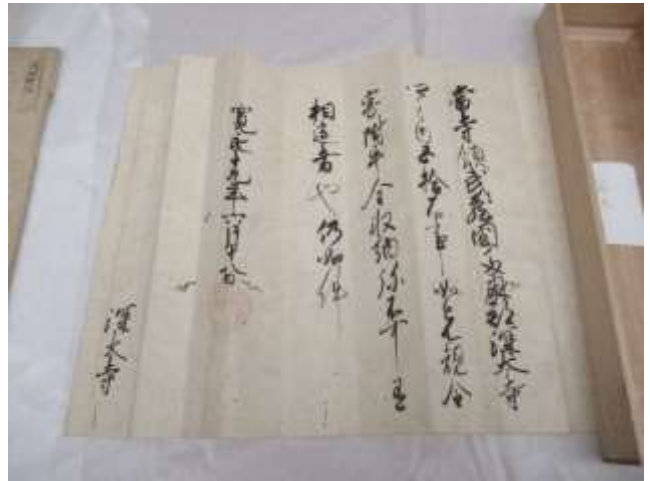 當寺領武蔵國多郡深大寺
之内五拾石事如先規全
寄附畢全収納不可有
相違者也仍如件
寛永十九年六月日
深大寺